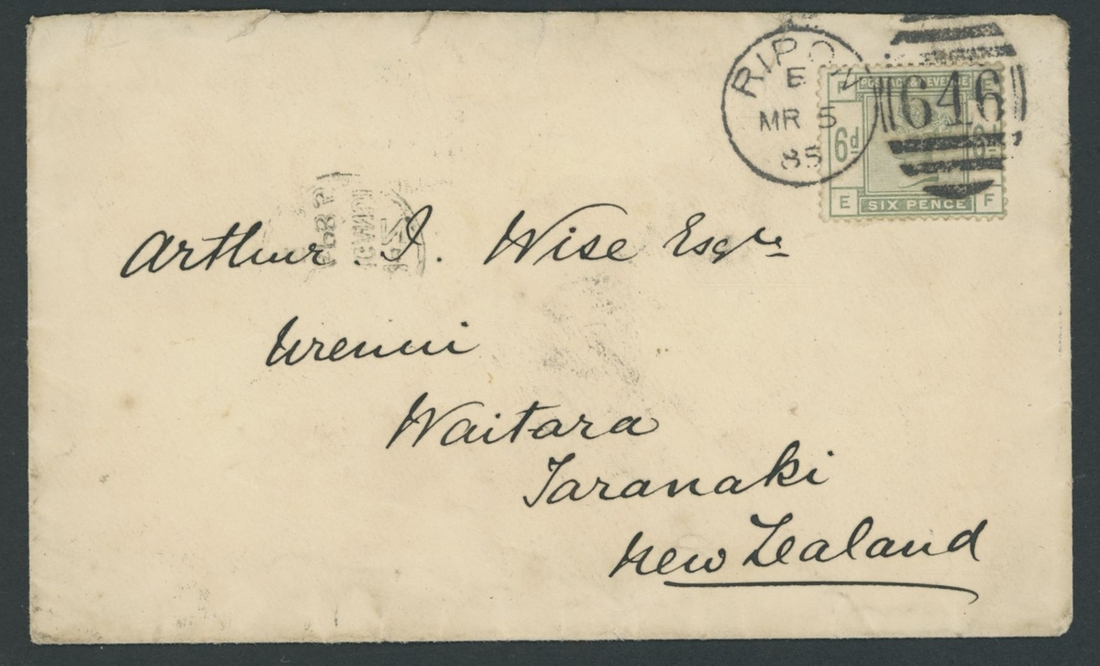 RIPON
E
MR 5
85
646
POSTAGE & REVENUE
6d 6d
E SIX PENCE F
Arthur J. Wise Esqre
Urenui
Waitara
Taranaki
New Zealand